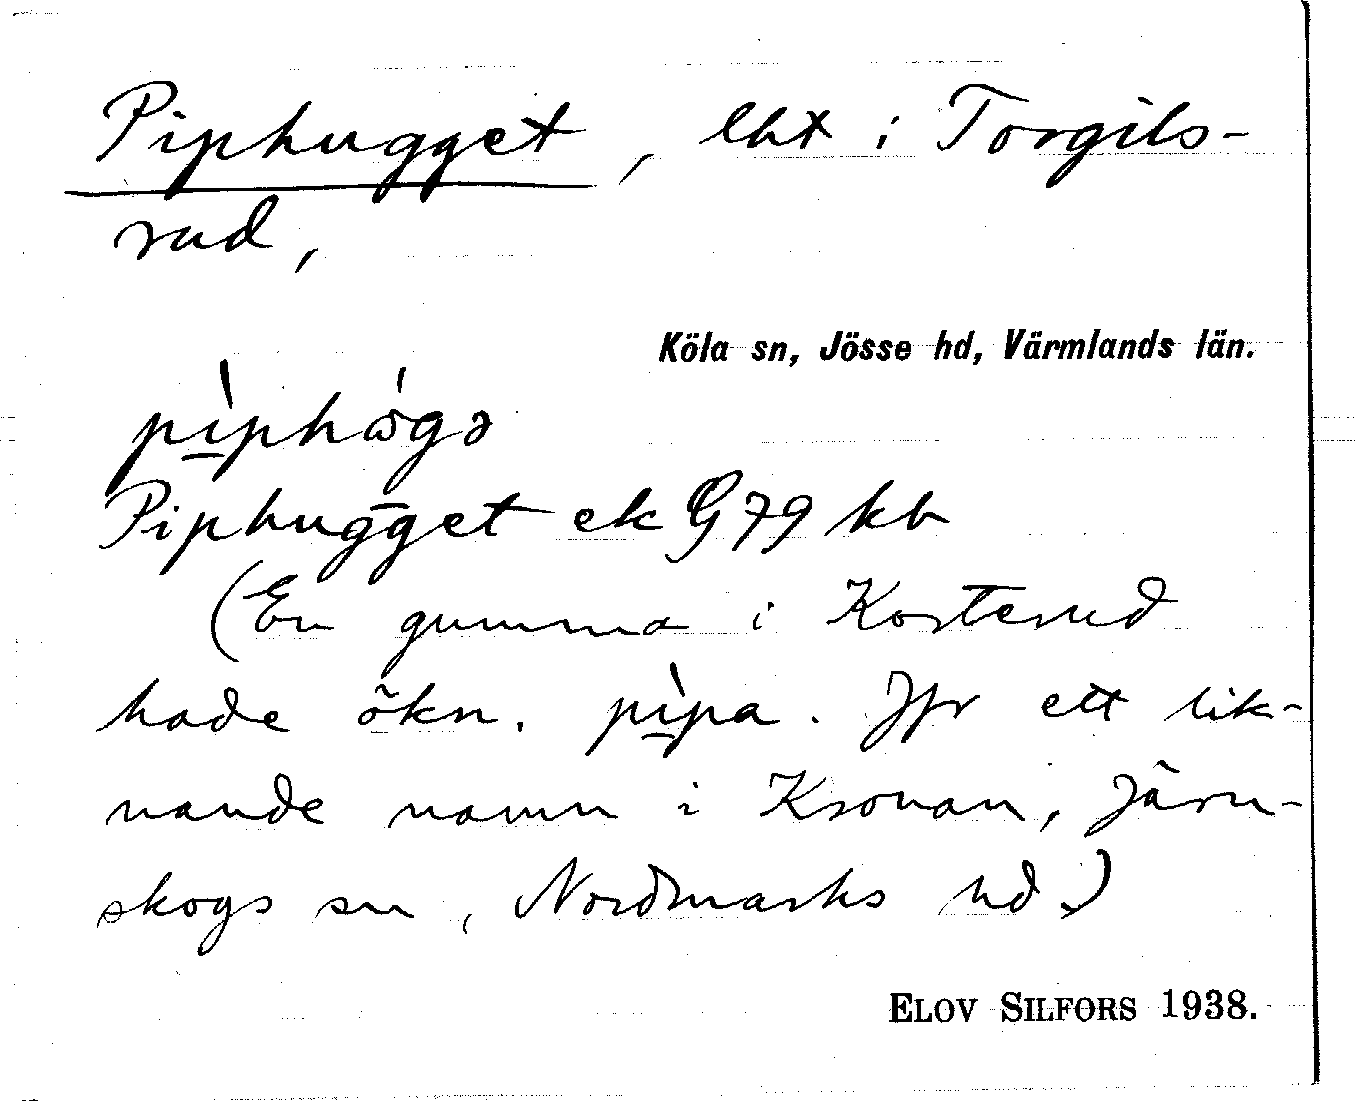 Piphugget, lht i Torgils-
rud,
Köla sn, Jösse hd, Värmlands län.
pì̲phɷ́gə
Piphugget ek G79 kb
(En gumma i Kosterud
hade ökn. pì̲pa. Jfr ett lik-
nande namn i Kronan, Järn-
skogs sn, Nordmarks hd.)
ELOV SILFORS 1938.